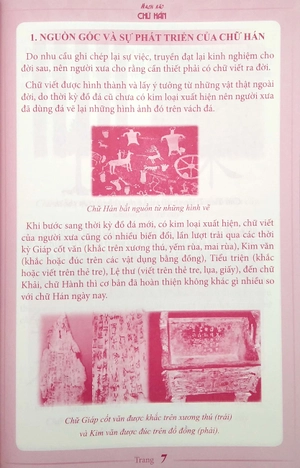 CHỮ HÁN
1. NGUỒN GỐC VÀ SỰ PHÁT TRIỂN CỦA CHỮ HÁN
Do nhu cầu ghi chép lại sự việc, truyền đạt lại kinh nghiệm cho
đời sau, nên người xưa cho rằng cần thiết phải có chữ viết ra đời.
Chữ viết được hình thành và lấy ý tưởng từ những vật thật ngoài
đời, do thời kỳ đồ đá cũ chưa có kim loại xuất hiện nên người xưa
đã dùng đá vẽ lại những hình ảnh đó trên vách đá.
Chữ Hán bắt nguồn từ những hình vẽ
Khi bước sang thời kỳ đồ đá mới, có kim loại xuất hiện, chữ viết
của người xưa cũng có nhiều biến đổi, lần lượt trải qua các thời
kỳ Giáp cốt văn (khắc trên xương thú, yếm rùa, mai rùa), Kim văn
(khắc hoặc đúc trên các vật dụng bằng đồng), Tiểu triện (khắc
hoặc viết trên thẻ tre), Lệ thư (viết trên thẻ tre, lụa, giấy), đến chữ
Khải, chữ Hành thì cơ bản đã hoàn thiện không khác gì nhiều so
với chữ Hán ngày nay.
Chữ Giáp cốt văn được khắc trên xương thú (trái)
và Kim văn được đúc trên đồ đồng (phải).
Trang 7